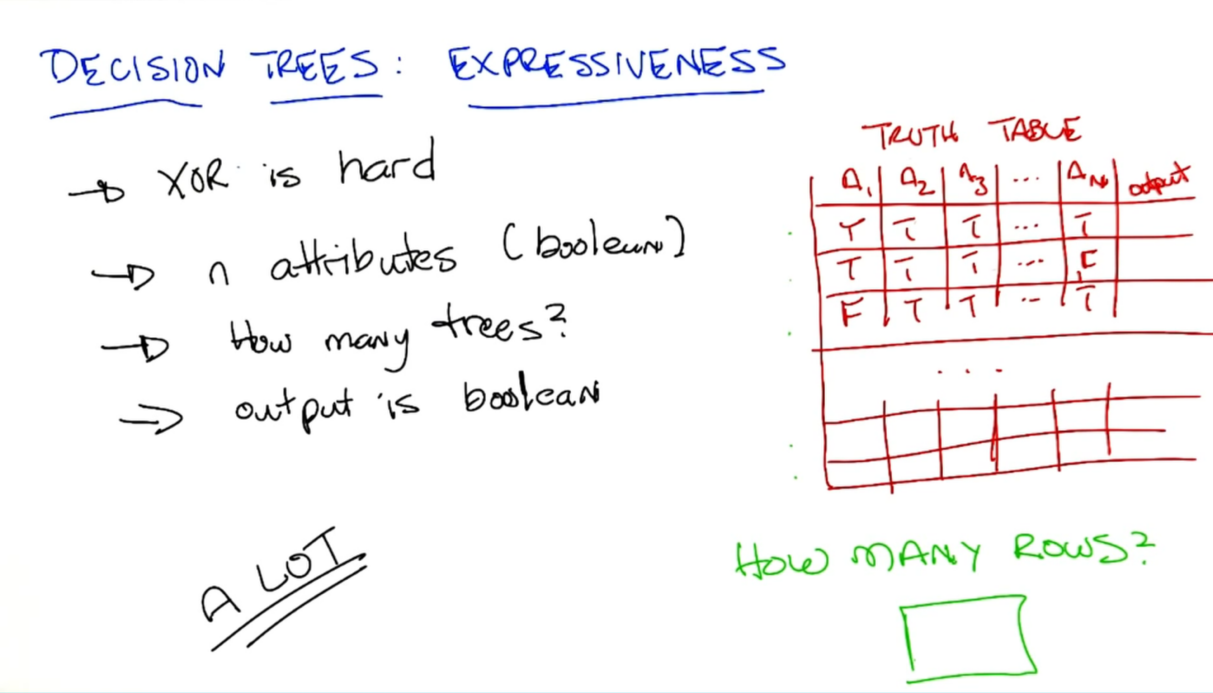 DECISION TREES: EXPRESSIVENESS
→ XOR is hard
→ n attributes (boolean)
→ How many trees?
→ output is boolean
A LOT
TRUTH TABLE
A1 A2 A3 ... AN output
T T T ... T
T T T ... F
F T T ... T
...
HOW MANY ROWS?